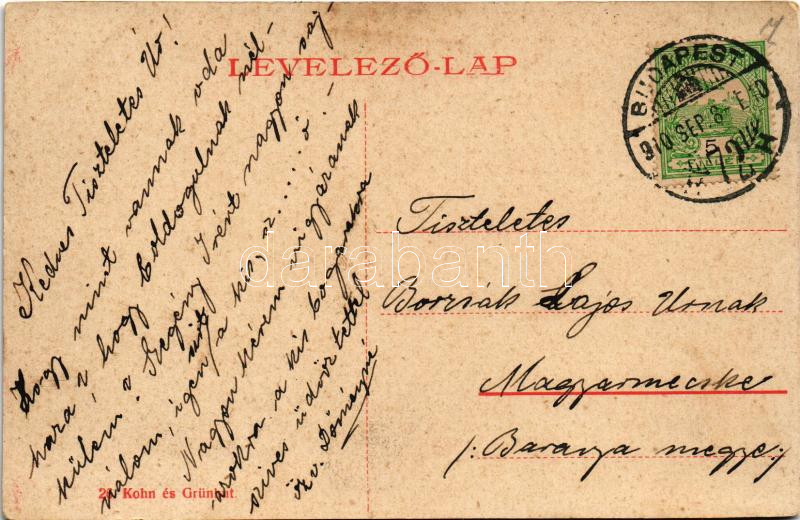 LEVELEZŐ-LAP
BUDAPEST
910 SEP 8
72
5
7
Kedves Tiszteletes Úr!
Hogy mint vannak oda
haza, s hogy boldogulnak nél-
külem? Szegény Irént nagyon saj-
nálom, igen a kis, az.....ő.-
Nagyon kérem vigyázzanak
azokra a kis bogarakra
szives üdvözlettel
özv. Dömény
Tiszteletes
Borzsák Lajos Urnak
Magyarmecske
/: Baranya megye :/
Kohn és Grünhut.
darabanth